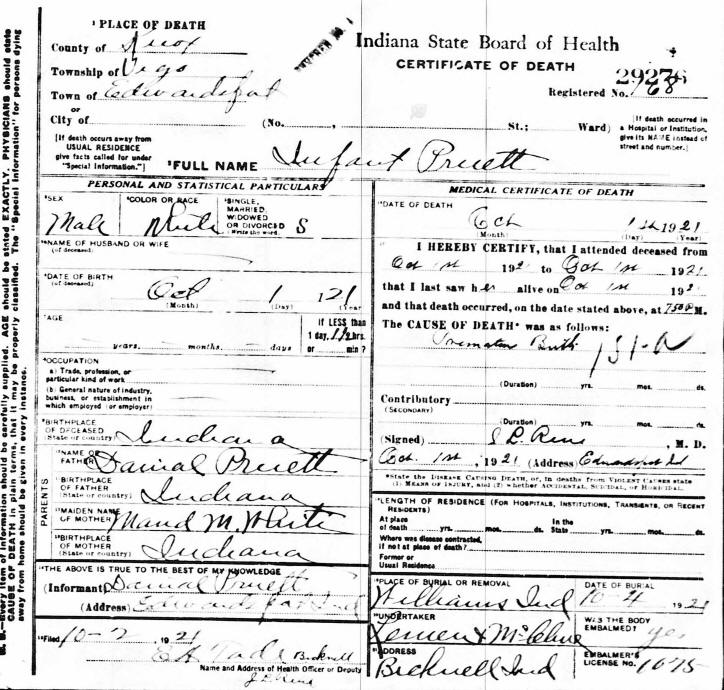 N. B.—Every item of information should be carefully supplied. AGE should be stated EXACTLY. PHYSICIANS should state
CAUSE OF DEATH in plain terms, that it may be properly classified. The "Special Information" for persons dying
away from home should be given in every instance.
¹PLACE OF DEATH
County of Knox
Township of Vigo
Town of Edwardsport
or
City of
Indiana State Board of Health
CERTIFICATE OF DEATH
29276
Registered No. 168
(No. , St.; Ward)
[If death occurs away from
USUAL RESIDENCE
give facts called for under
"Special Information."]
[If death occurred in
a Hospital or Institution,
give its NAME instead of
street and number.]
²FULL NAME Infant Pruett
PERSONAL AND STATISTICAL PARTICULARS
³SEX
Male
⁴COLOR OR RACE
White
⁵SINGLE,
MARRIED,
WIDOWED
OR DIVORCED
(Write the word) S
NAME OF HUSBAND OR WIFE
(of deceased)
DATE OF BIRTH
(of deceased)
Oct 1 121
(Month) (Day) (Year)
AGE
years. months. days
If LESS than
1 day, hrs.
or min?
OCCUPATION
a) Trade, profession, or
particular kind of work
(b) General nature of industry,
business, or establishment in
which employed (or employer)
BIRTHPLACE
OF DECEASED
(State or country) Indiana
PARENTS
NAME OF
FATHER Danial Pruett
BIRTHPLACE
OF FATHER
(State or country) Indiana
MAIDEN NAME
OF MOTHER Maud M. White
BIRTHPLACE
OF MOTHER
(State or country) Indiana
THE ABOVE IS TRUE TO THE BEST OF MY KNOWLEDGE
(Informant) Danial Pruett
(Address) Edwardsport Ind
Filed 10-2, 1921
Bicknell
Name and Address of Health Officer or Deputy
MEDICAL CERTIFICATE OF DEATH
DATE OF DEATH
Oct 1st 1921
(Month) (Day) (Year)
I HEREBY CERTIFY, that I attended deceased from
Oct 1st 1921 to Oct 1st 1921
that I last saw her alive on Oct 1st 192
and that death occurred, on the date stated above, at 7 50 P M.
The CAUSE OF DEATH* was as follows:
Premature Birth
(Duration) yrs. mos. ds.
Contributory
(SECONDARY)
(Duration) yrs. mos. ds.
(Signed) , M. D.
Oct 1st, 1921 (Address) Edwardsport Ind
*State the DISEASE CAUSING DEATH, or, in deaths from VIOLENT CAUSES state
(1) MEANS OF INJURY, and (2) whether ACCIDENTAL, SUICIDAL, or HOMICIDAL.
LENGTH OF RESIDENCE (FOR HOSPITALS, INSTITUTIONS, TRANSIENTS, OR RECENT
RESIDENTS)
At place
of death yrs. mos. ds.
In the
State yrs. mos. ds.
Where was disease contracted,
if not at place of death?
Former or
Usual Residence
PLACE OF BURIAL OR REMOVAL
Williams Ind
DATE OF BURIAL
10-4 1921
UNDERTAKER
Lemen & McClure
WAS THE BODY
EMBALMED? yes
ADDRESS
Bicknell Ind
EMBALMER'S
LICENSE NO. 1075